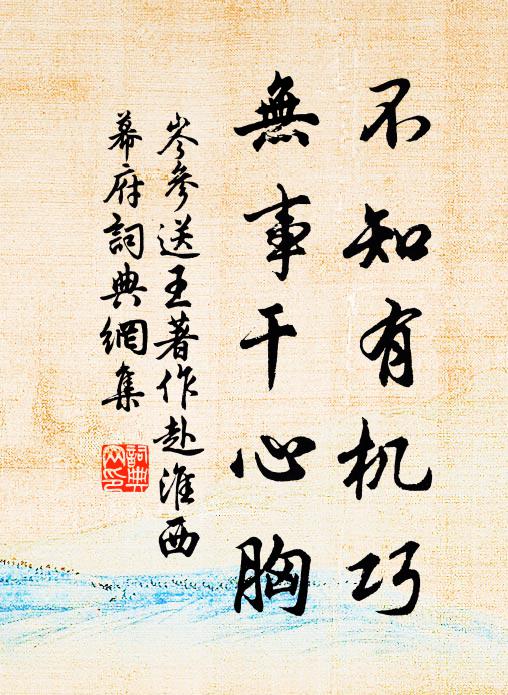 不知有机巧
無事干心胸
岑參送王著作赴淮西
幕府詞典網集
詞典
网印